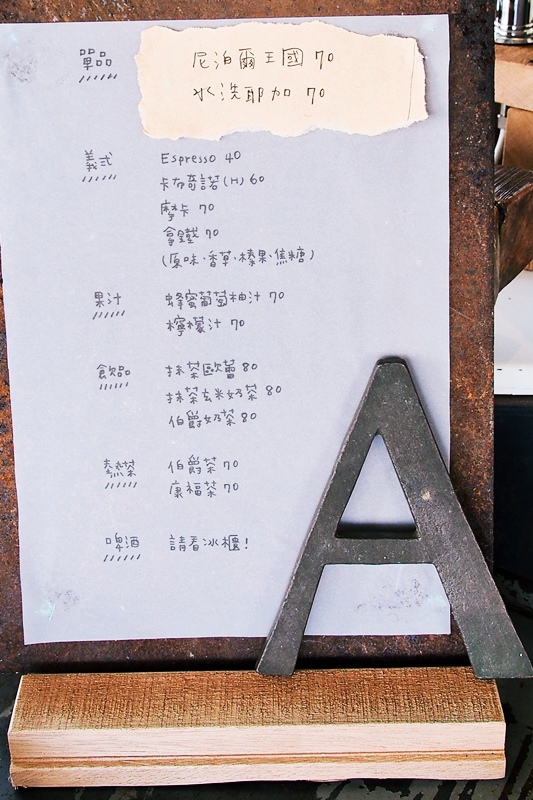 單品 尼泊爾王國 70
水洗耶加 70
義式 Espresso 40
卡布奇諾(H) 60
摩卡 70
拿鐵 70
(原味·香草·榛果·焦糖)
果汁 蜂蜜葡萄柚汁 70
檸檬汁 70
飲品 抹茶歐蕾 80
抹茶玄米奶茶 80
伯爵奶茶 80
熱茶 伯爵茶 70
康福茶 70
啤酒 請看冰櫃!
A